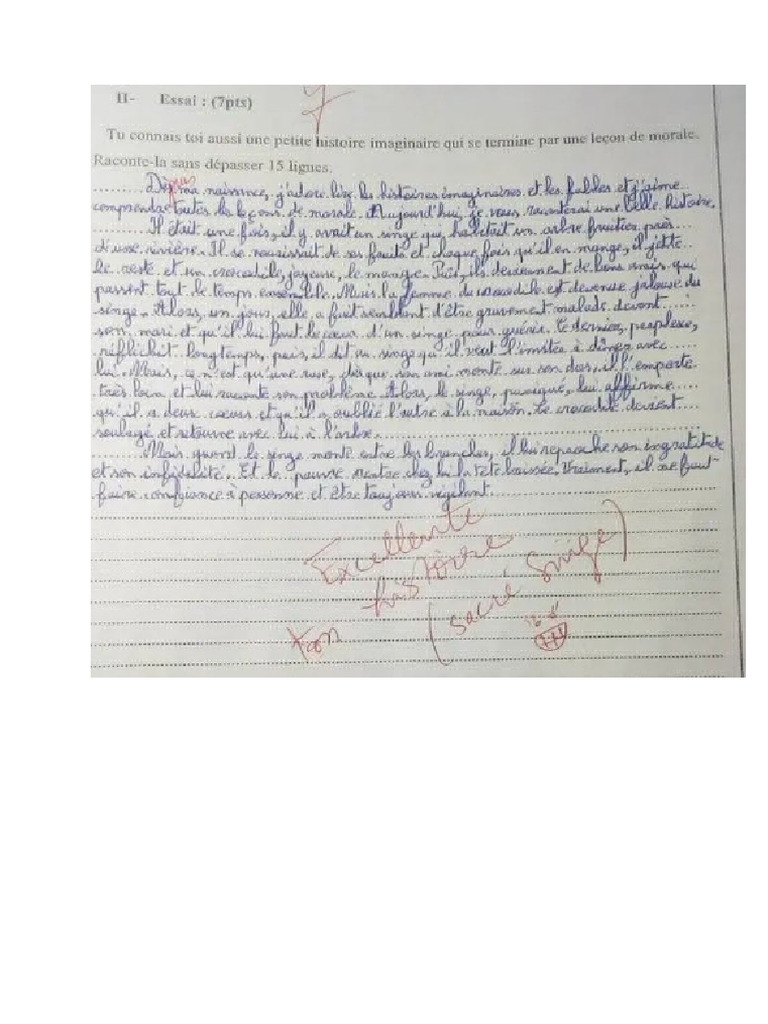 7
II- Essai : (7pts)
Tu connais toi aussi une petite histoire imaginaire qui se termine par une leçon de morale.
Raconte-la sans dépasser 15 lignes.
ma naissance, j'adore lire les histoires imaginaires et les fables et j'aime
comprendre toutes les leçons de morale. Aujourd'hui, je vous raconterai une belle histoire.
Il était une fois, il y avait un singe qui habitait un arbre fruitier près
d'une rivière. Il se nourissait de ses fruits et chaque fois qu'il en mange, il jette
le reste et un crocodile, joyeuse, le mange. Puis, ils deviennent de bons amis qui
passent tout le temps ensemble. Mais la femme du crocodile est devenue jalouse du
singe. Alors, un jour, elle a fait semblant d'être gravement malade devant
son mari et qu'il lui faut le cœur d'un singe pour guérir. Ce dernier, perplexe,
réfléchit longtemps, puis, il dit au singe qu'il veut l'inviter à dîner avec
lui. Mais, ce n'est qu'une ruse, dès que son ami monte sur son dos, il l'emporte
très loin et lui raconte son problème. Alors, le singe, paniqué, lui affirme
qu'il a deux cœurs et qu'il a oublié l'autre à la maison. Le crocodile devient
soulagé et retourne avec lui à l'arbre.
Mais quand le singe monte entre les branches, il lui reproche son ingratitude
et son infidélité. Et le pauvre rentre chez lui la tête baissée. Vraiment, il ne faut
faire confiance à personne et être toujours vigilant.
Excellente
ton histoire
(sacré singe)